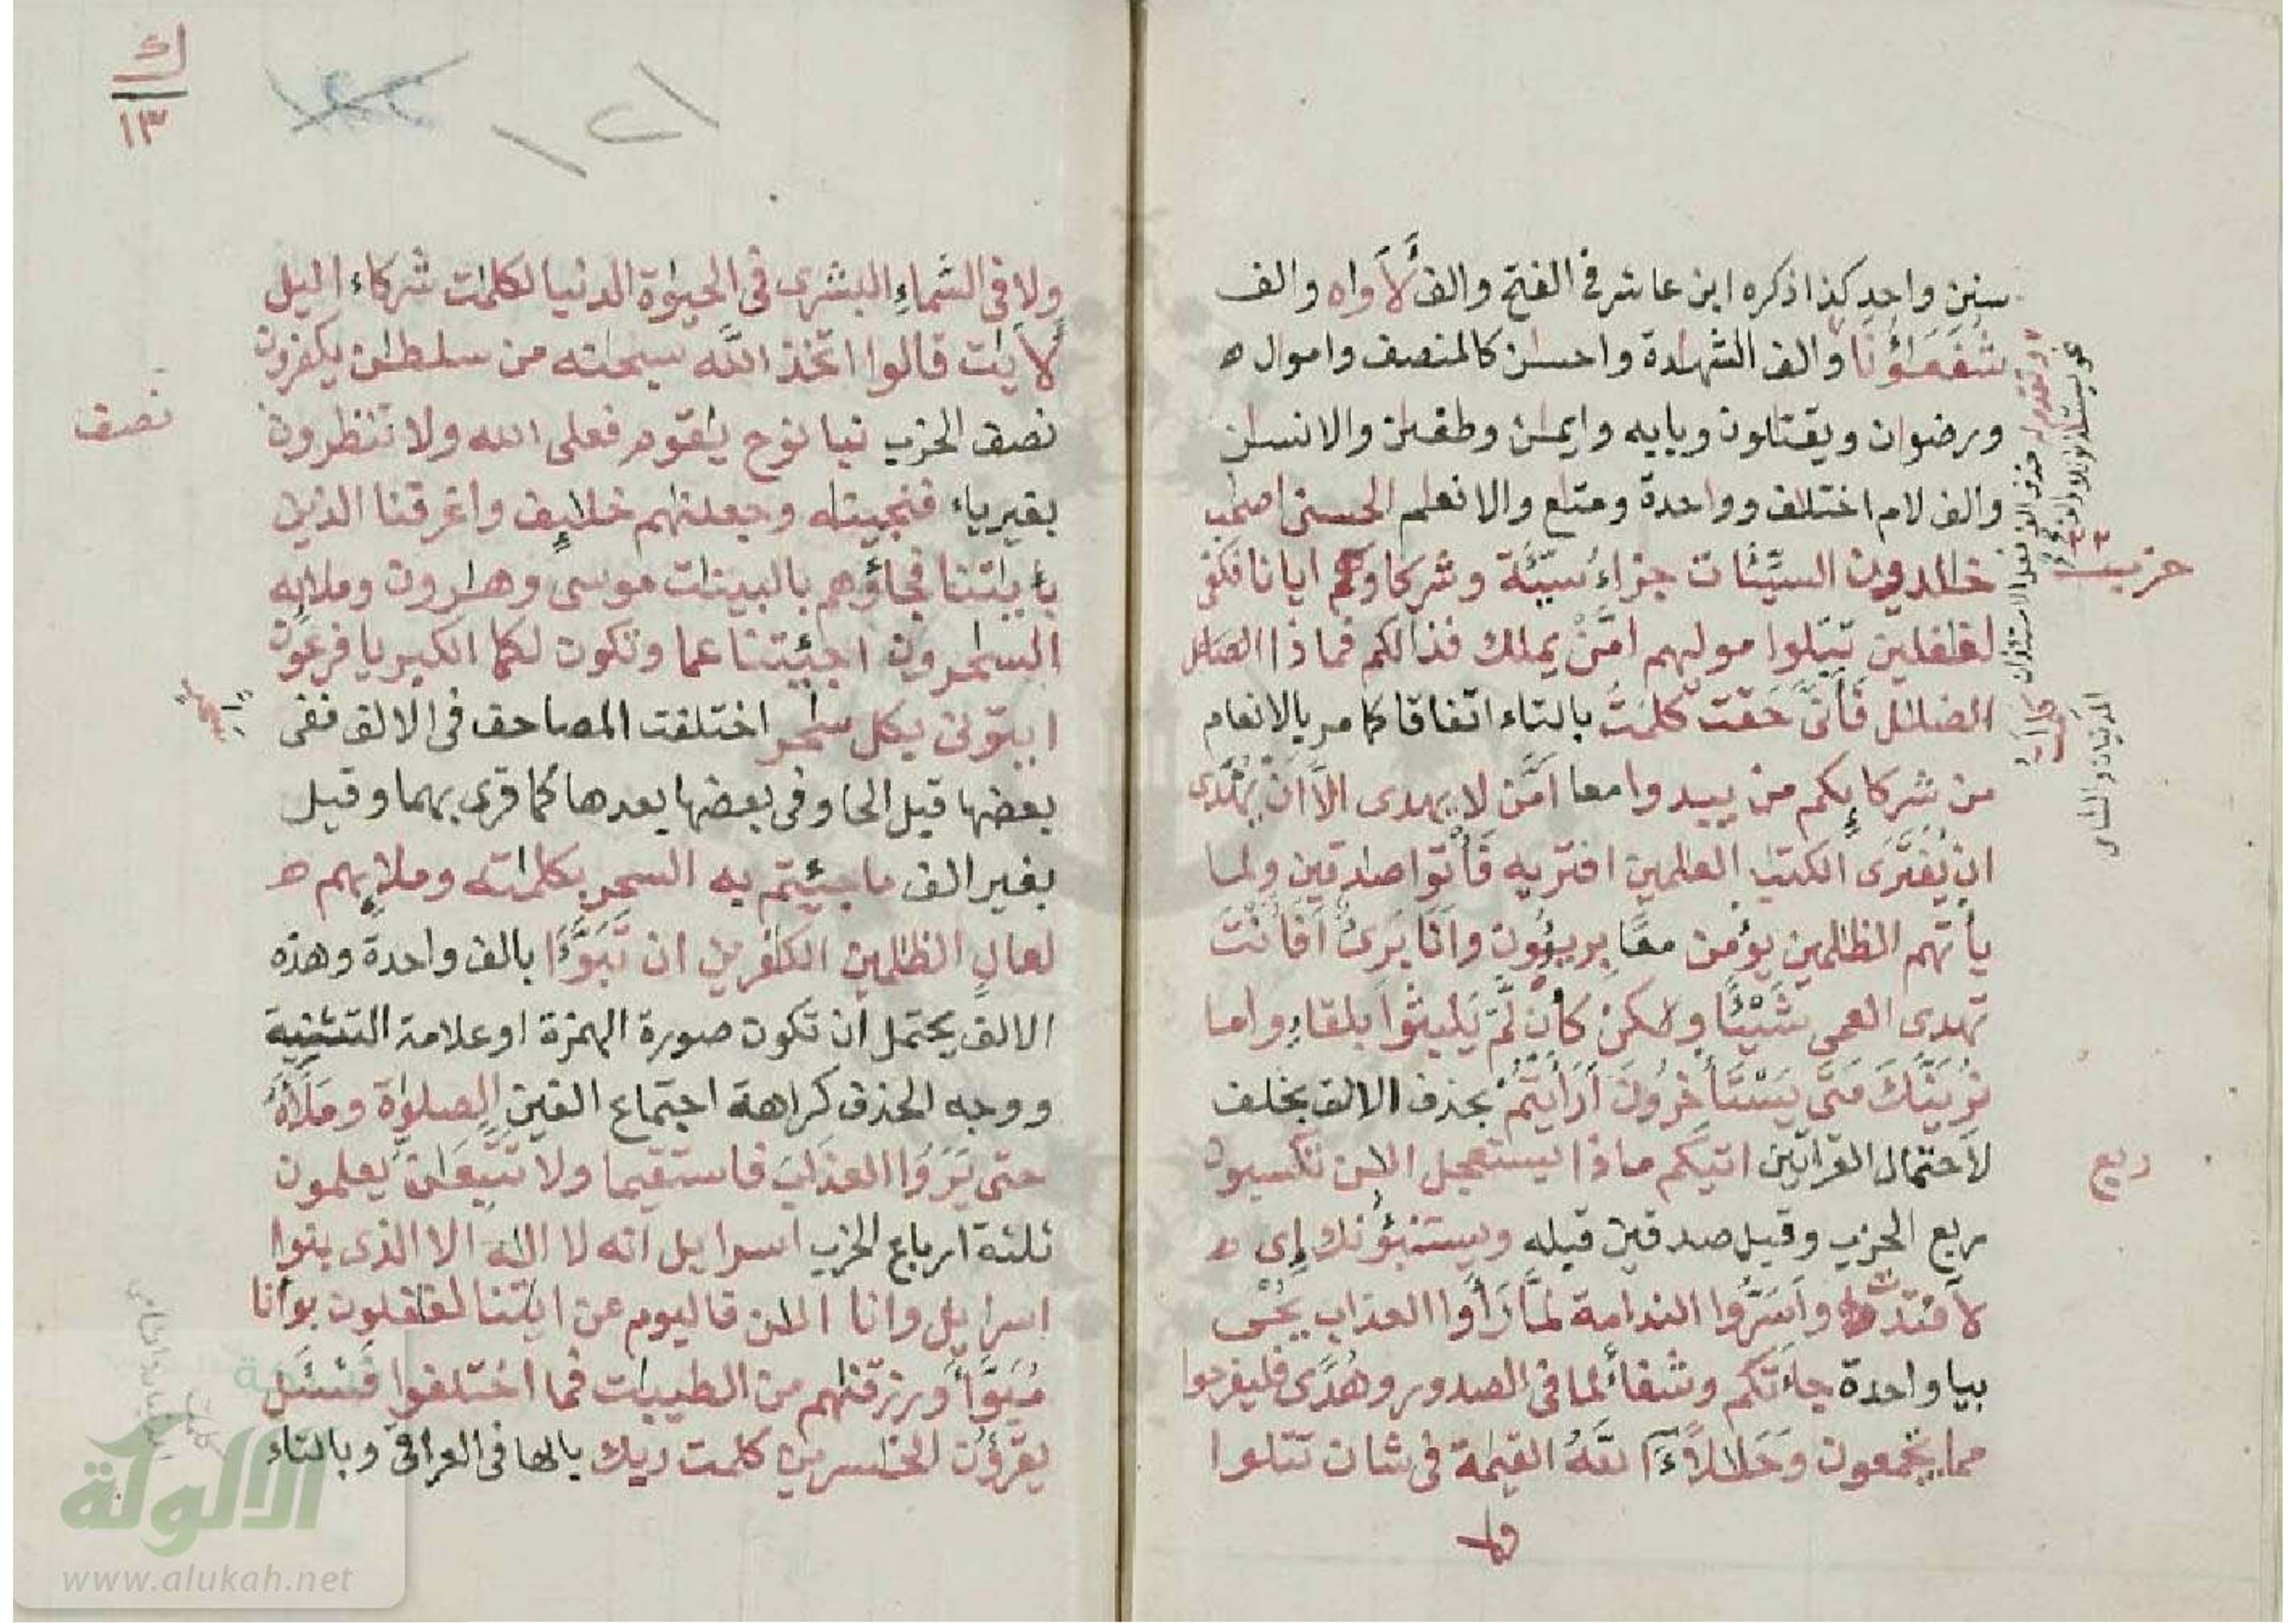 سنين واحد كذا ذكره ابن عاشر في الفتح والف لأواه والف
شفعاؤنا والف الشهادة واحسن كالمنصف واموال ه
ورضوان ويقتلون وبايه وايمن وطغين والانسن
والف لام اختلف وواحدة ومتع والانعلم الحسنى اصحب
خالدون السيّئات جزاء سيّئة وشركاوكم ايانا فكفى
لغفلين تبلوا موليهم امّن يملك فذالكم فماذا
الضلل فأنّى حقت كلمت بالتاء اتفاقا كما مر بالانعام
من شركايكم من يبدوا معا امّن لا يهدى الّا ان يُهدى
ان يُفترى الكتب العلمين افتريه فأتوا صدقين ولما
يأتهم الظلمين يؤمن معا بريؤون وانا برئ افأنت
تهدى العمى شيئا ولكن كأن لم يلبثوا بلقاء واما
نُرينّك متى يستأخرون أرأيتم بحذف الالف بخلف
لاحتمال القرأتين اتيكم ماذا يستعجل الن تكسبون
ربع الحزب وقيل صدقين قبله ويستنبؤنك إى ه
لافتدت وأسرّوا الندامة لمّا رأوا العذاب يحى
بيا واحدة جاءتكم وشفاء لما فى الصدور وهدى فليفرحوا
مما يجمعون وحللا ءآلله القيمة فى شان تتلوا
ولا
حزب
ربع
ولا فى السماء البشرى فى الحيوة الدنيا لكلمت شركاء اليل
لأيت قالوا اتخذ الله سبحنه من سلطن يكفرون
نصف الحزب نبا نوح يقوم فعلى الله ولا تنظرون
بغير ياء فنجينه وجعلنهم خليف واغرقنا الذين
بأيتنا فجاؤهم بالبينت موسى وهرون وملايه
السحرون اجئتنا عما وتكون لكما الكبريا فرعون
ايتونى بكل سحر اختلفت المصاحف فى الالف ففى
بعضها قبل الحا وفى بعضها بعدها كما قرى بهما وقيل
بغير الف ما جيئتم به السحر بكلمته وملايهم ه
لعال الظلمين الكفرين ان تبوّءا بالف واحدة وهذه
الالف يحتمل ان تكون صورة الهمزة او علامة التثنية
ووجه الحذف كراهة اجتماع الفين الصلوة وملأه
حتى يروا العذاب فاستقيما ولا تتبعن يعلمون
ثلثة ارباع الحزب اسرايل انه لا اله الا الذى بنوا
اسرايل وانا الن فاليوم عن ايتنا لغفلون بوأنا
مبوّأ ورزقنهم من الطيبت فما اختلفوا فسئل
يقرؤن الخسرين كلمت ربك بالها فى العراقى وبالتاء
نصف
ك
١٣
١٢١
الألوكة
www.alukah.net